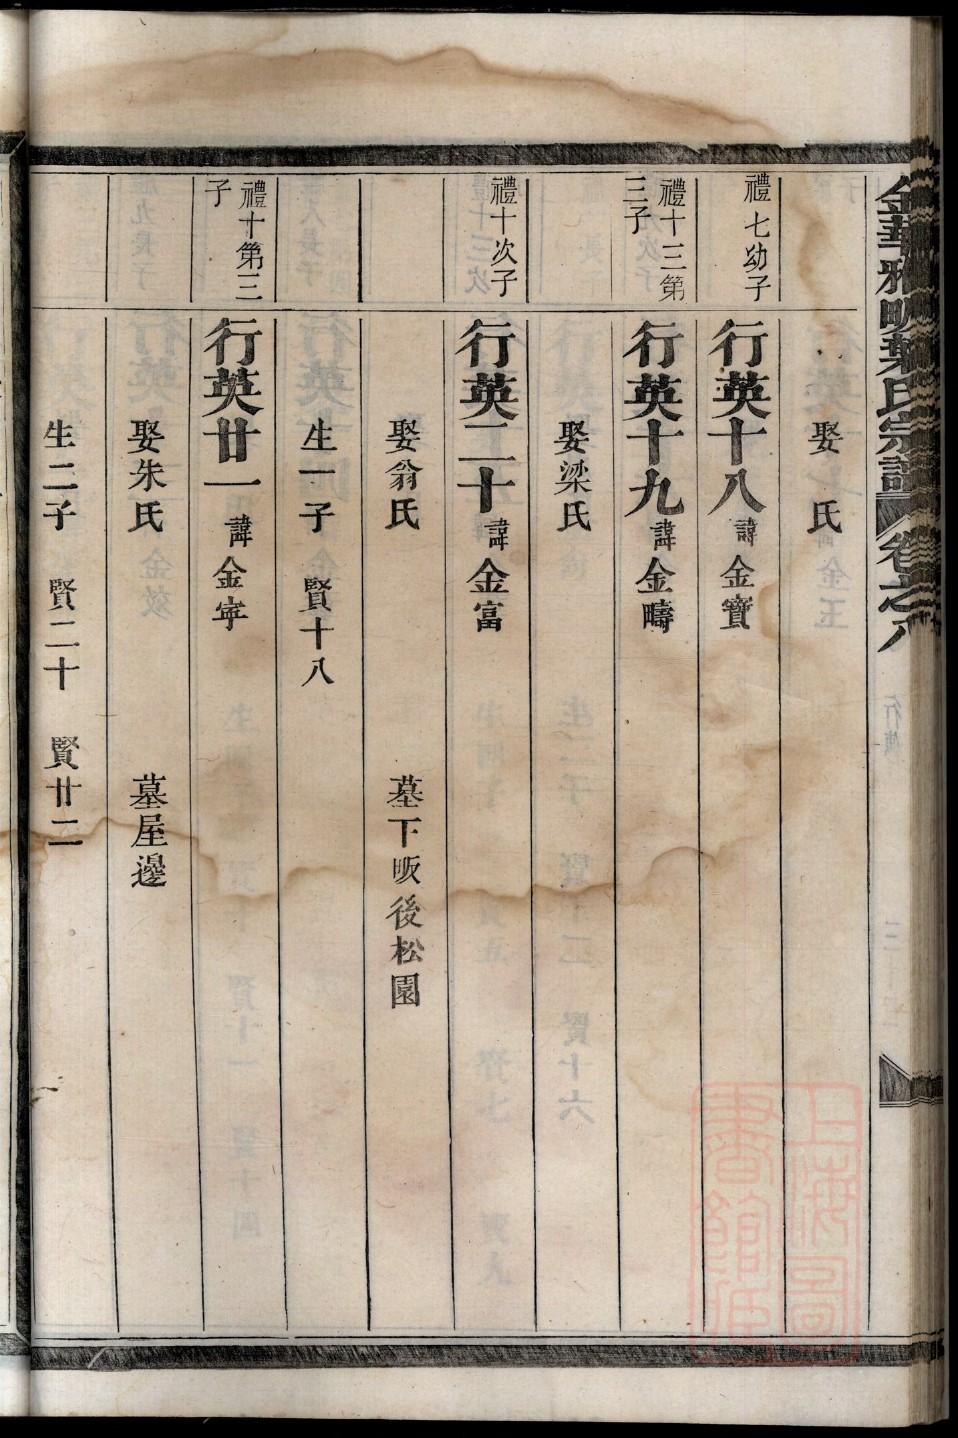 金華雅畈葉氏宗譜 卷之八
行傳
娶 氏
禮七幼子
行英十八 諱金寶
禮十三第三子
行英十九 諱金疇
娶梁氏
禮十次子
行英二十 諱金富
娶翁氏 墓下畈後松園
生一子 賢十八
禮十第三子
行英廿一 諱金寜
娶朱氏 墓屋邊
生二子 賢二十 賢廿二
上海圖書館藏